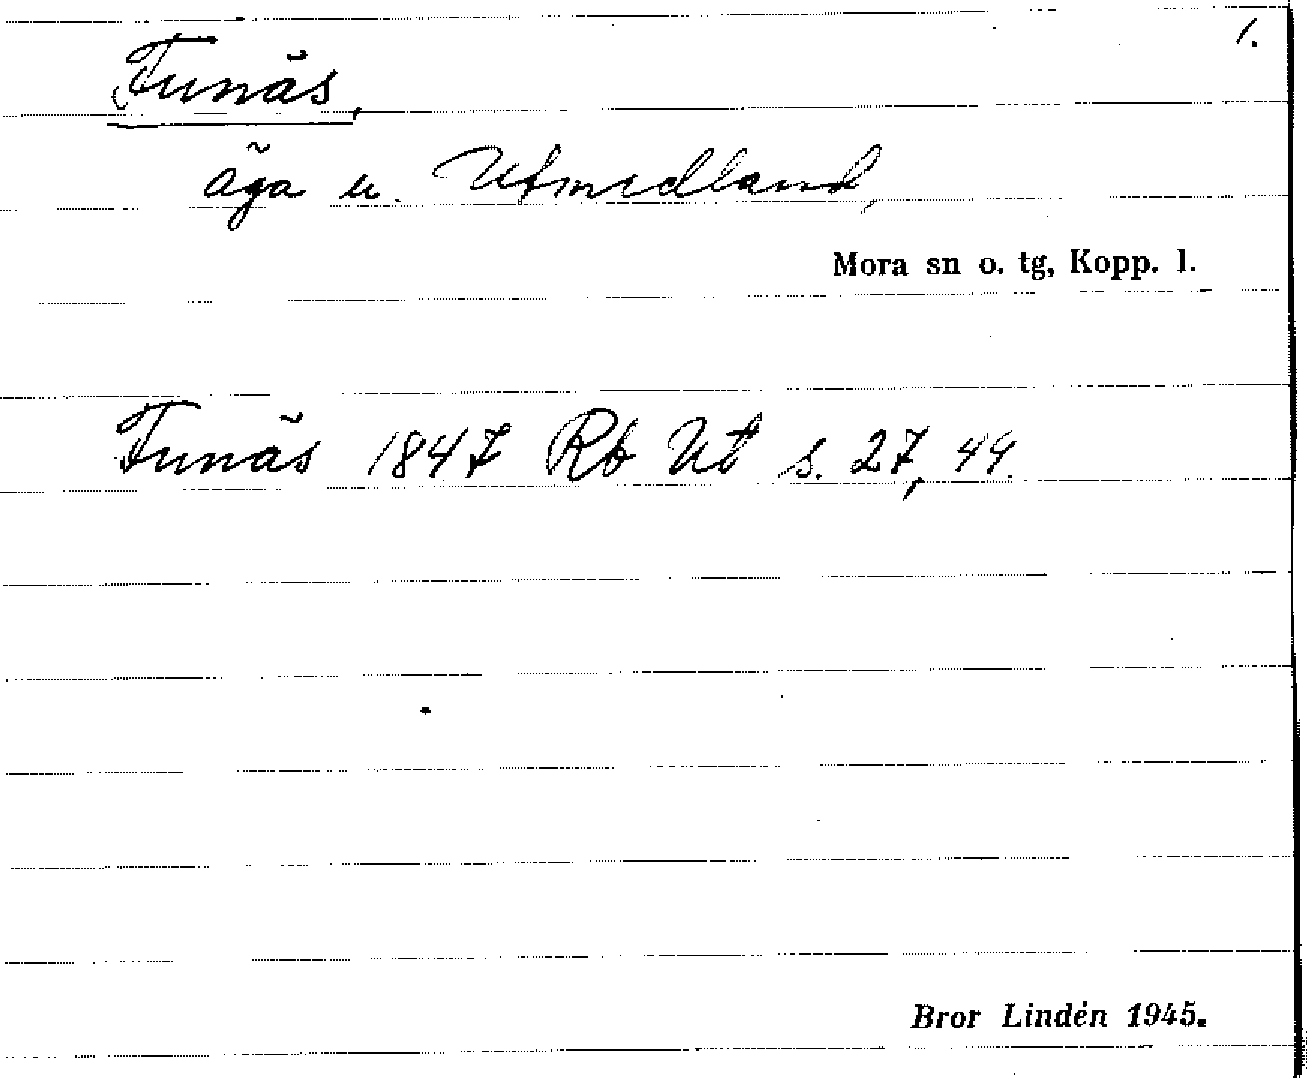 1.
Tunäs,
äga u. Utmedland,
Mora sn o. tg, Kopp. l.
Tunäs 1847 Rb Ut s. 27, 44.
Bror Lindén 1945.